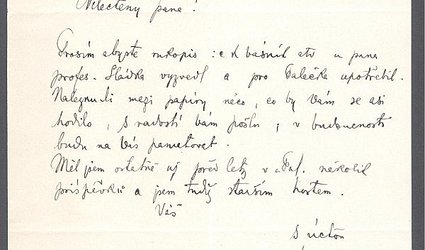 Velectěný pane!
Prosím abyste rukopis básní atd u pana
profes. Sládka vyzvedl a pro Palečka upotřebil.
Naleznu-li mezi papíry něco, co by Vám se asi
hodilo, s radostí Vám pošlu, i v budoucnosti
budu na Vás pamatovat.
Měl jsem ostatně už před lety v Pal. několik
příspěvků a jsem tudíž starším hostem.
Váš
S úctou